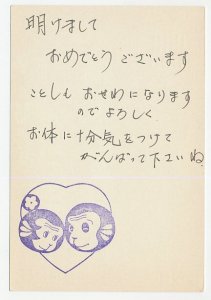 明けまして
おめでとうございます
ことしも おせわになります
のでよろしく
お体に十分気をつけて
がんばって下さいね